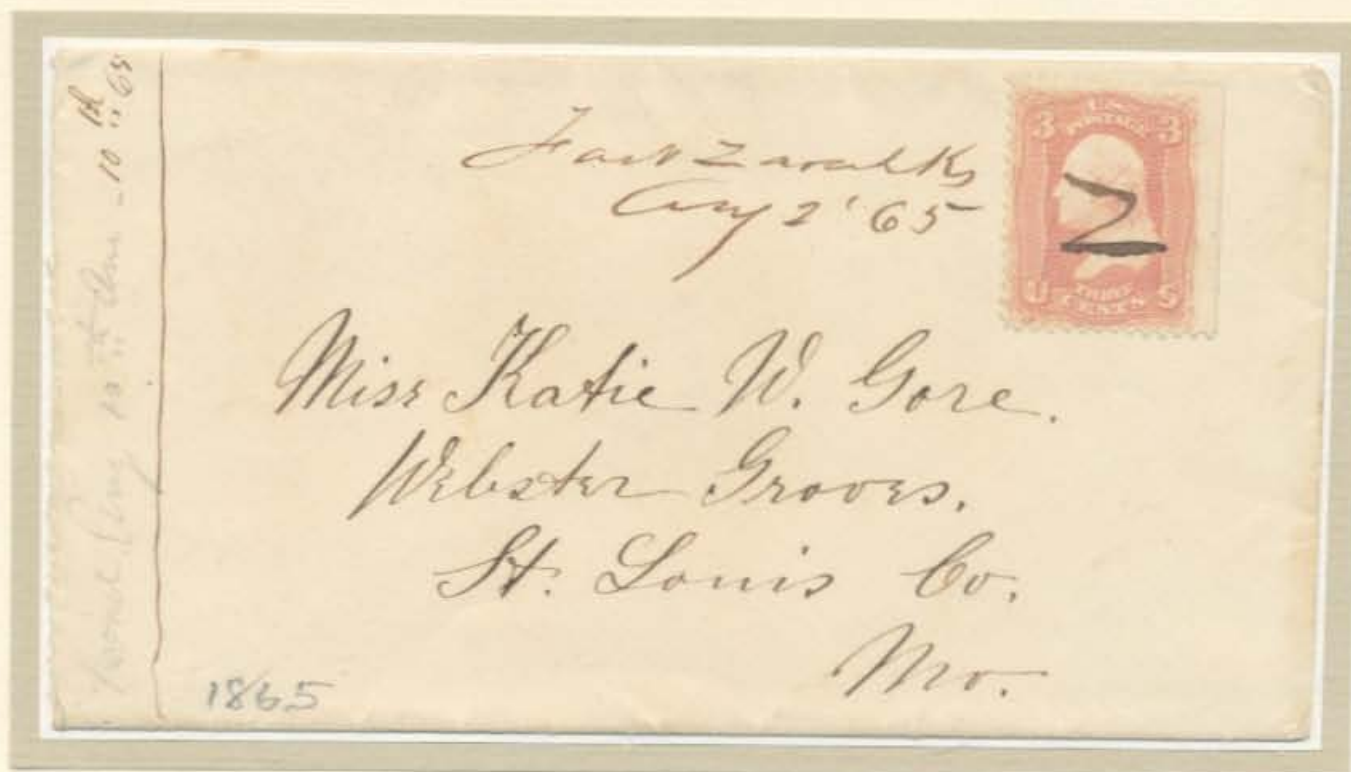 Fort Zarah Ks
Aug 2' 65
U.S.
POSTAGE
3 3
U THREE S
CENTS
Miss Katie W. Gore.
Webster Groves.
St. Louis Co.
Mo.
1865
10th 65